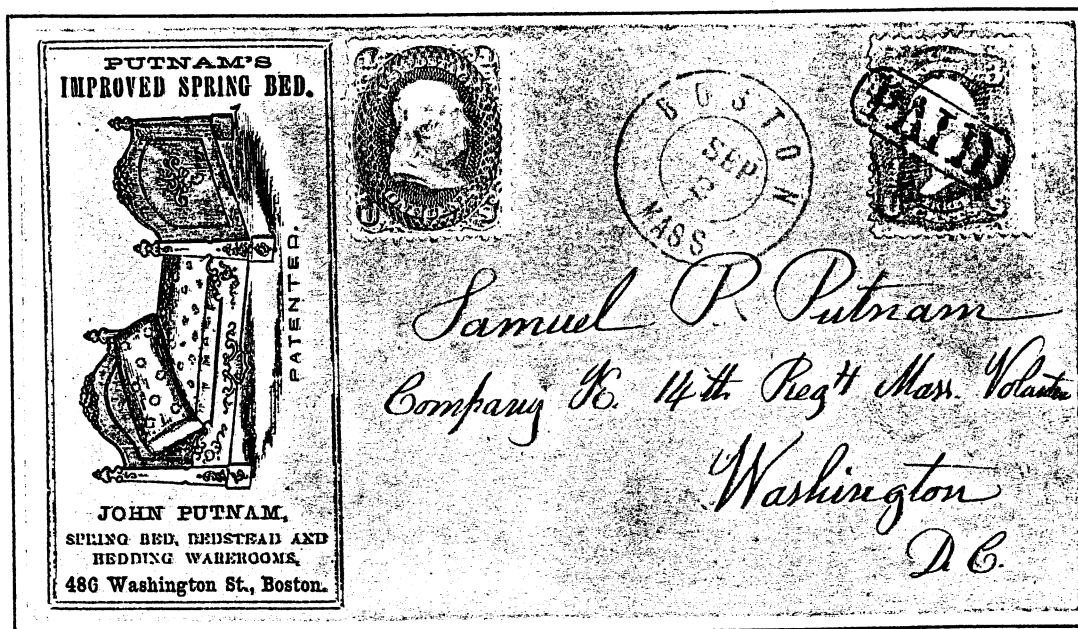 PUTNAM'S
IMPROVED SPRING BED.
PATENTED.
JOHN PUTNAM,
SPRING BED, BEDSTEAD AND
BEDDING WAREROOMS,
486 Washington St., Boston.
BOSTON
SEP
MASS
PAID
Samuel P. Putnam
Company K. 14th Regt Mass.
Washington
D.C.